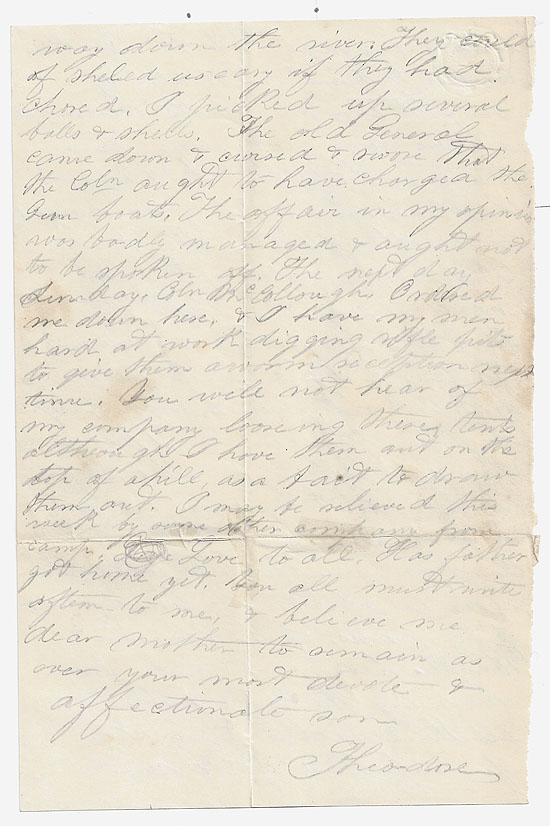 way down the river. They could
of sheled us easy if they had
chored. I picked up several
balls & shells. The old General
came down & cursed & swore that
the Coln aught to have charged the
Gun boats. The affair in my opinion
was badly managed & aught not
to be spoken off. The next day
Sunday, Coln McCollough, Ordred
me down here, & I have my men
hard at work digging rifle pits
to give them a worm reception next
time. You will not hear of
my company loosing there tents
although I have them out on the
top of a hill, as a bait to draw
them out. I may be relieved this
week by some other company from
camp. Love to all. Has father
got home yet. You all must write
often to me, & believe me
dear mother to remain as
ever your most devote &
affectionate son
Theodore